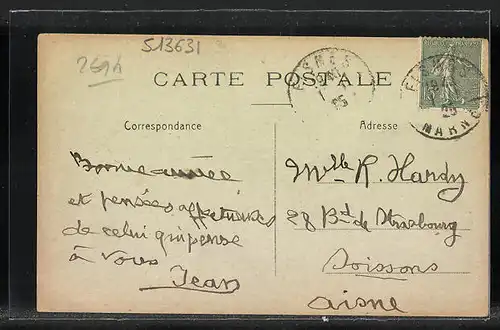 513631
259A
CARTE POSTALE
FISMES
25
FISMES
25
MARNE
Correspondance
Adresse
Bonne année
et pensées affectueuses
de celui qui pense
à vous
Jean
Melle R. Hardy
28 Bd de Strasbourg
Soissons
Aisne